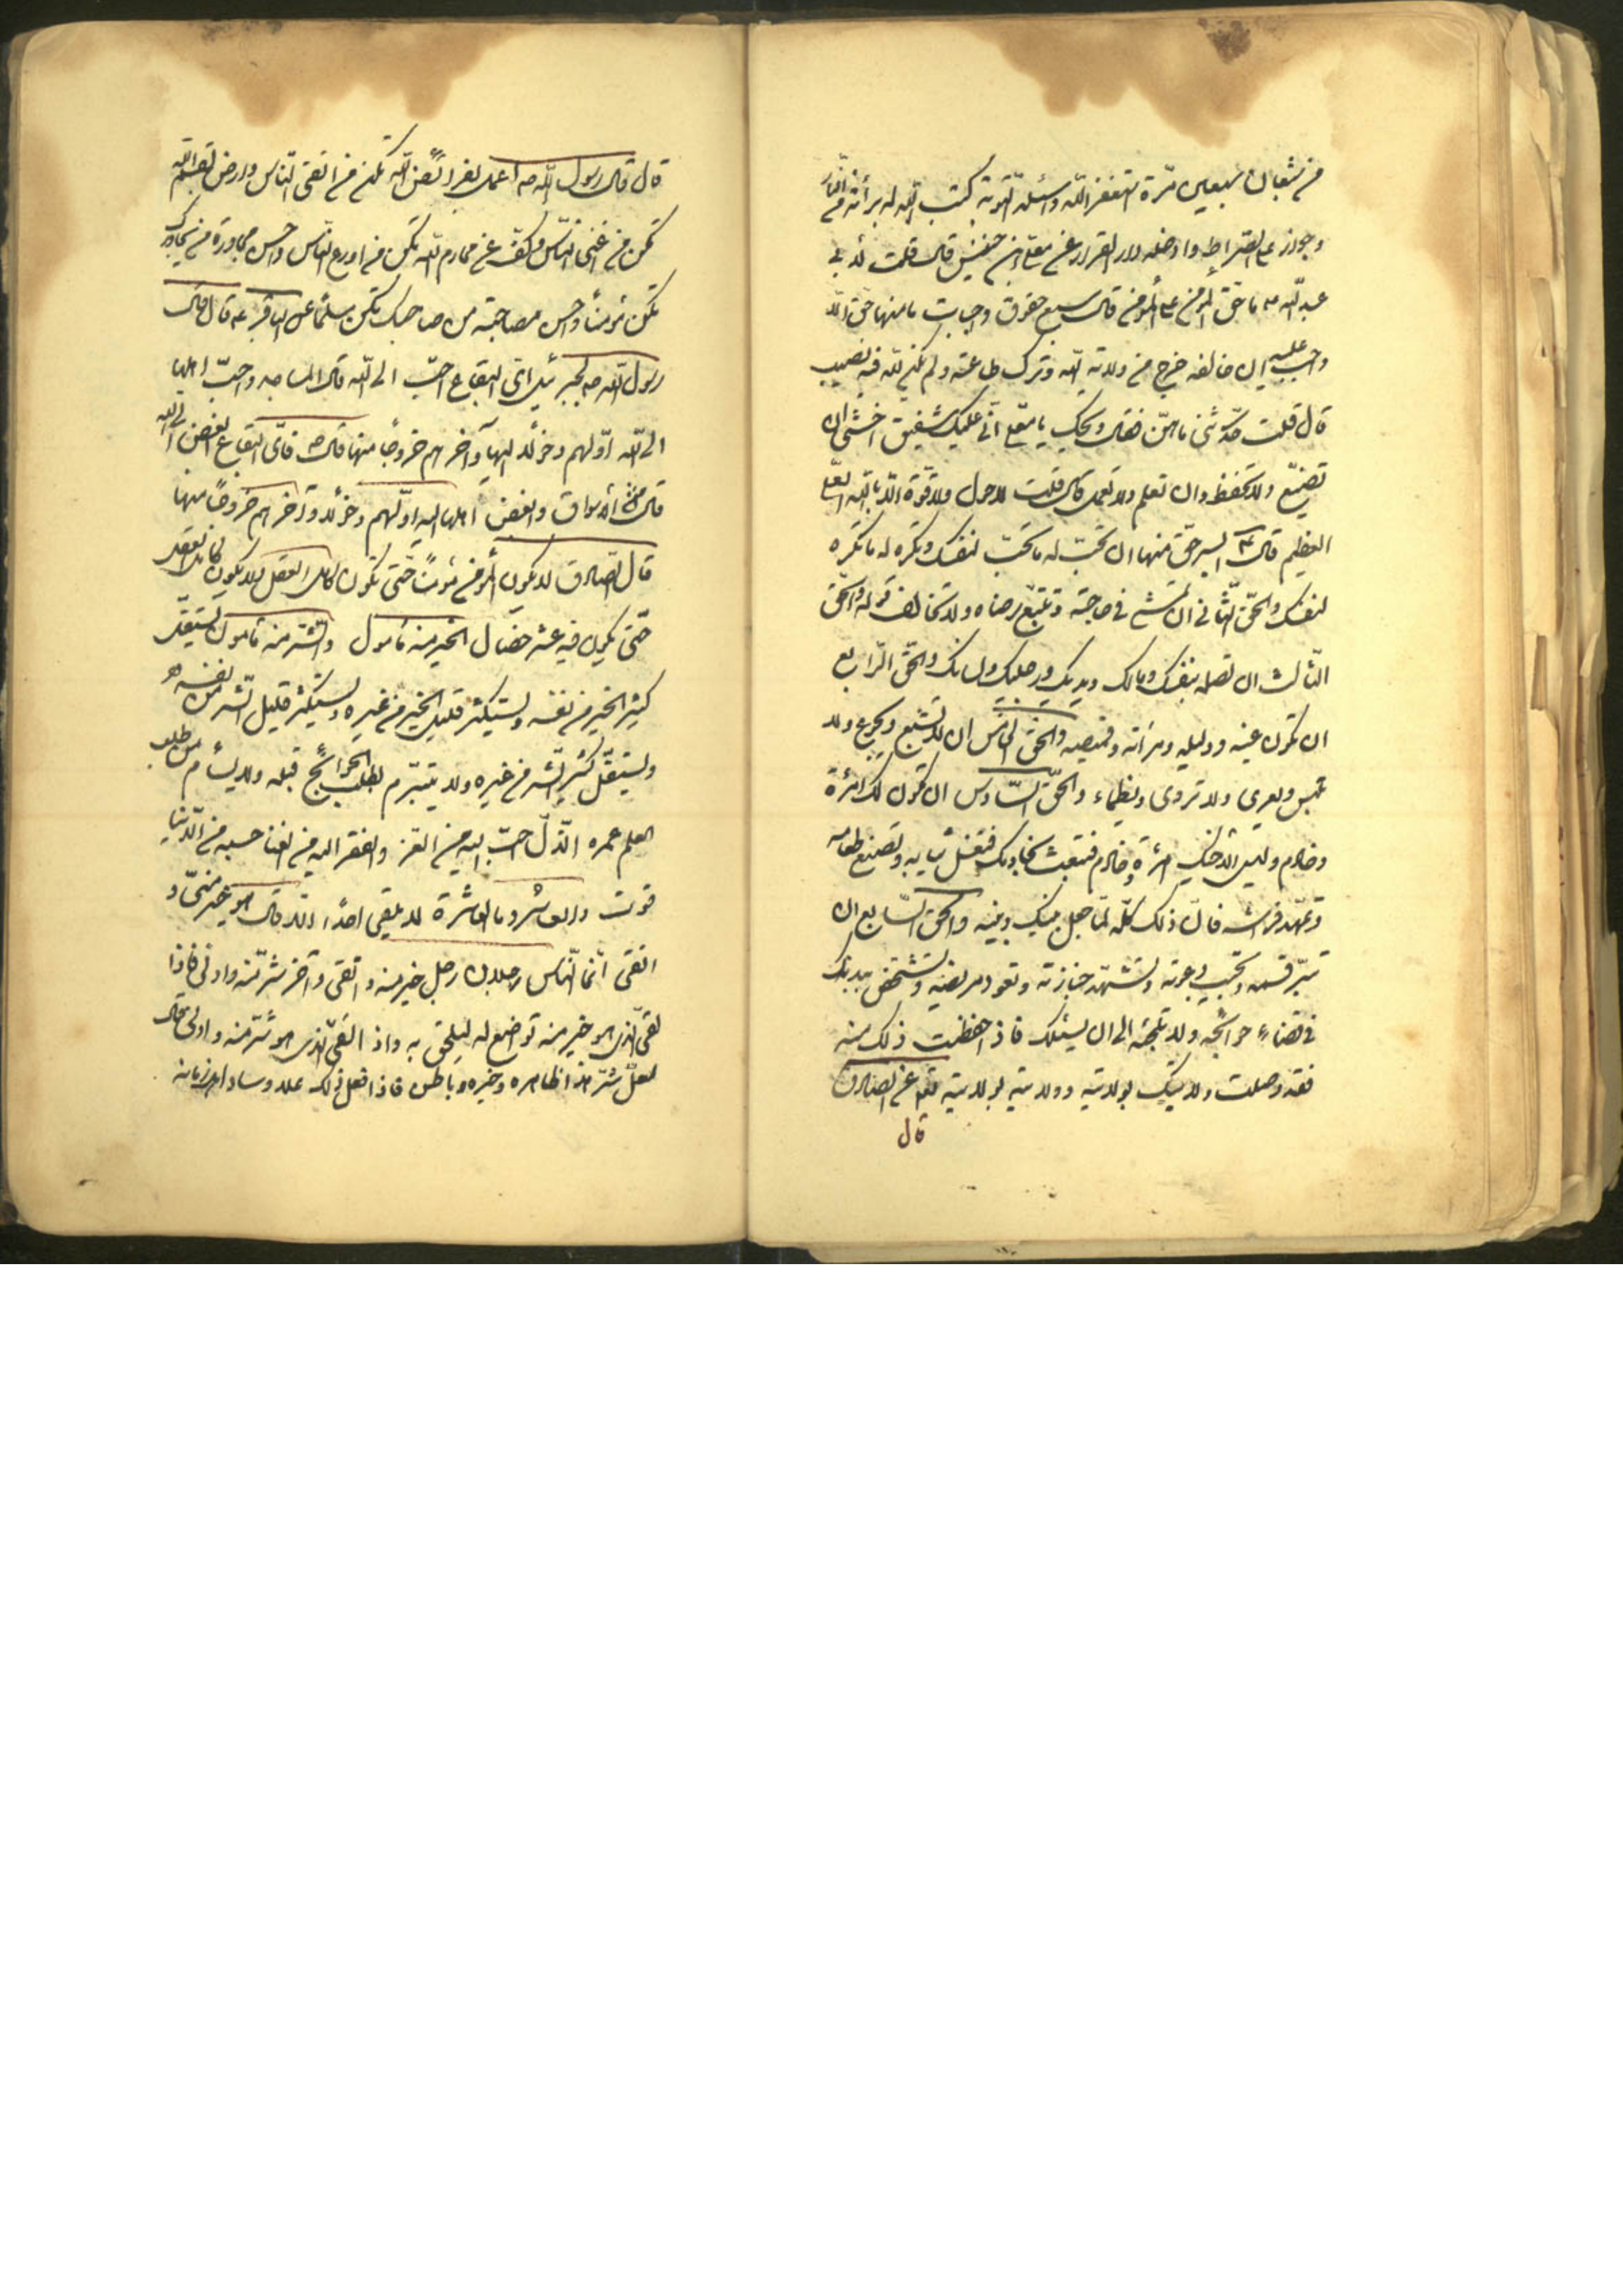 من شعبان سبعين مرّة استغفر اللّه واسئله التوبة كتب اللّه له برائة من النّار
وجواز على الصّراط وادخله دار القرار عن معلّى بن خنيس قال قلت لأبي
عبد اللّه ع ما حق المؤمن على المؤمن قال سبع حقوق واجبات ما منها حق الّا
واجب عليه ان خالفه خرج من ولاية اللّه وترك طاعته ولم يكن للّه فيه نصيب
قال قلت حدّثنى ما هنّ فقال ويحك يا معلّى انّى عليك شفيق اخشى ان
تضيّع ولا تحفظ وان تعلم ولا تعمل قال قلت لا حول ولا قوّة الّا باللّه العلى
العظيم قال ع ايسر حق منها ان تحبّ له ما تحبّ لنفسك وتكره له ما تكره
لنفسك والحقّ الثّانى ان تمشى فى حاجته وتتبّع رضاه ولا تخالف قوله والحقّ
الثّالث ان تصله بنفسك ومالك ويديك ورجليك ولسانك والحقّ الرّابع
ان تكون عينه ودليله ومرأته وقميصه والحق الخامس ان لا تشبع ويجوع ولا
تلبس ويعرى ولا تروى ويظماء والحقّ السّادس ان تكون لك امرئة
وخادم وليس لأخيك امرئة وخادم فتبعث بخادمك فتغسل ثيابه وتصنع طعامه
وتمهّد فراشه فان ذلك كلّه لما جعل بينك وبينه والحق السّابع ان
تبرّ قسمه وتجيب دعوته وتشهد جنازته وتعود مريضه وتشخص ببدنك
فى قضاء حوائجه ولا تلجئه الى ان يسئلك فاذا حفظت ذلك منه
فقد وصلت ولايتك بولايته وولايته بولايته تعم عن الصّادق
قال
قال قال رسول اللّه ص اعمل بفرائض اللّه تكن من اتقى النّاس وارض بقسم اللّه
تكن من اغنى النّاس وكفّ عن محارم اللّه تكن من اورع النّاس واحسن مجاورة من يجاورك
تكن مؤمناً واحسن مصاحبة من صاحبك تكن مسلماً عن الباقر ع قال قال
رسول اللّه ص لجبرئيل اىّ البقاع احبّ الى اللّه قال المساجد واحبّ اهلها
الى اللّه اوّلهم دخولا اليها وآخرهم خروجاً منها قال ص فاىّ البقاع ابغض الى اللّه
قال الأسواق وابغض اهلها اليه اوّلهم دخولا وآخرهم خروجاً منها
قال الصادق لا يكون المؤمن مؤمناً حتّى يكون كامل العقل ولا يكون كامل العقل
حتّى يكون فيه عشر خصال الخير منه مأمول والشّر منه مأمون يستقلّ
كثير الخير من نفسه ويستكثر قليل الخير من غيره ويستكثر قليل الشّر من نفسه
ويستقلّ كثير الشّر من غيره ولا يتبرّم بطلب الحوائج قبله ولا يسأم من طلب
العلم عمره الذّلّ احبّ اليه من العز والفقر اليه من الغنا حسبه من الدّنيا
قوت والعاشر وما العاشرة لا يلقى احداً الّا قال هو خير منّى و
اتقى انّما النّاس رجلان رجل خير منه واتقى وآخر شرّ منه وادنى فاذا
لقى الّذى هو خير منه تواضع له ليلحق به واذا لقى الّذى هو شرّ منه وادنى قال
لعلّ شرّ هذا ظاهره وخيره باطن فاذا فعل ذلك علا وساد اهل زمانه